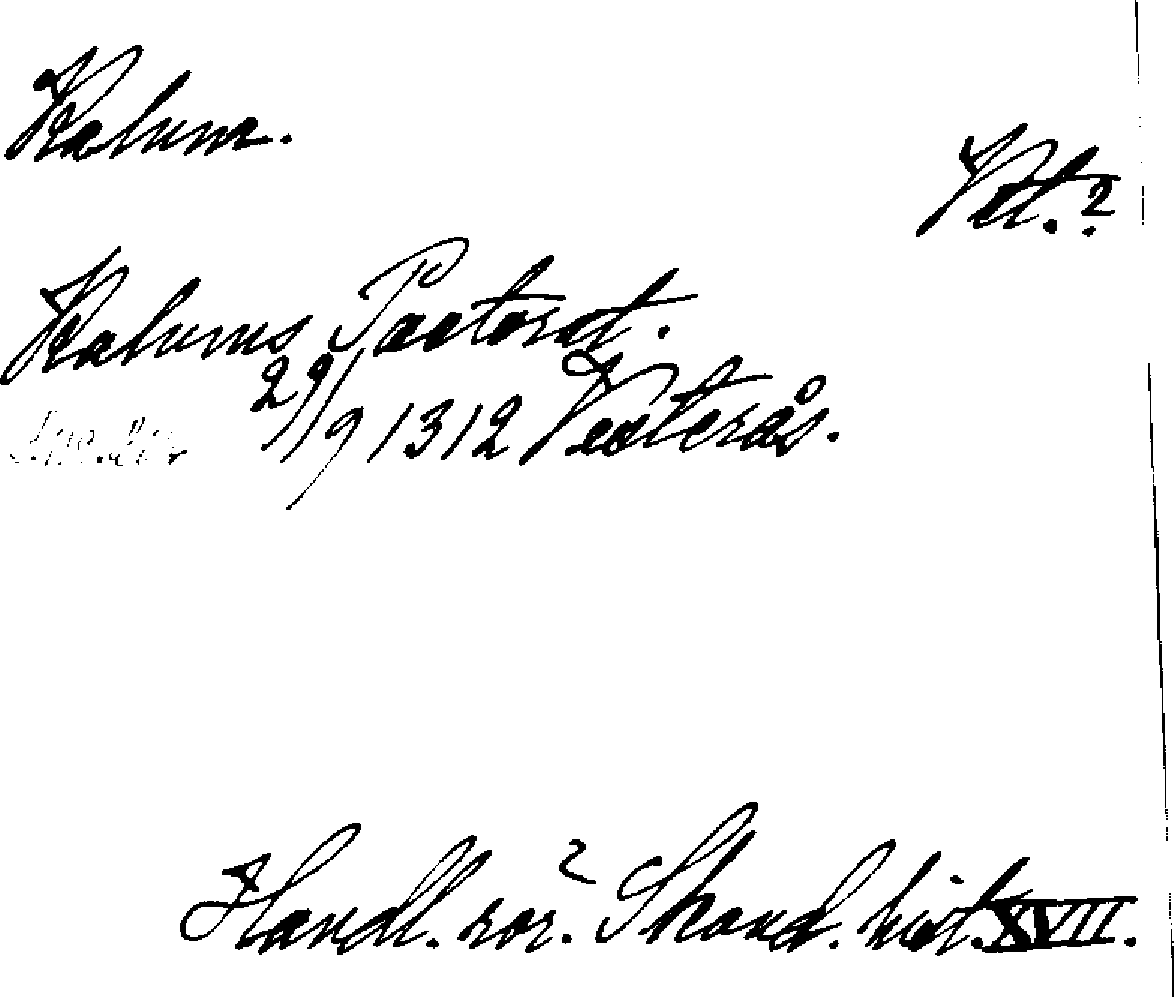 Kalum.
Vet.?
Kalums Pastorat.
29/9 1312 Vesterås.
Handl. rör. Skand. hist. XVII.